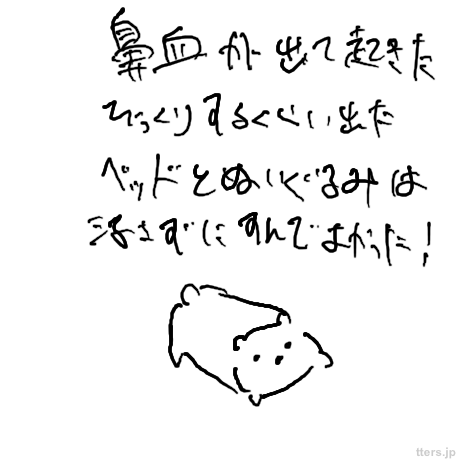 鼻血が出て起きた
びっくりするくらい出た
ベッドとぬいぐるみは
汚さずにすんでよかった!
tters.jp